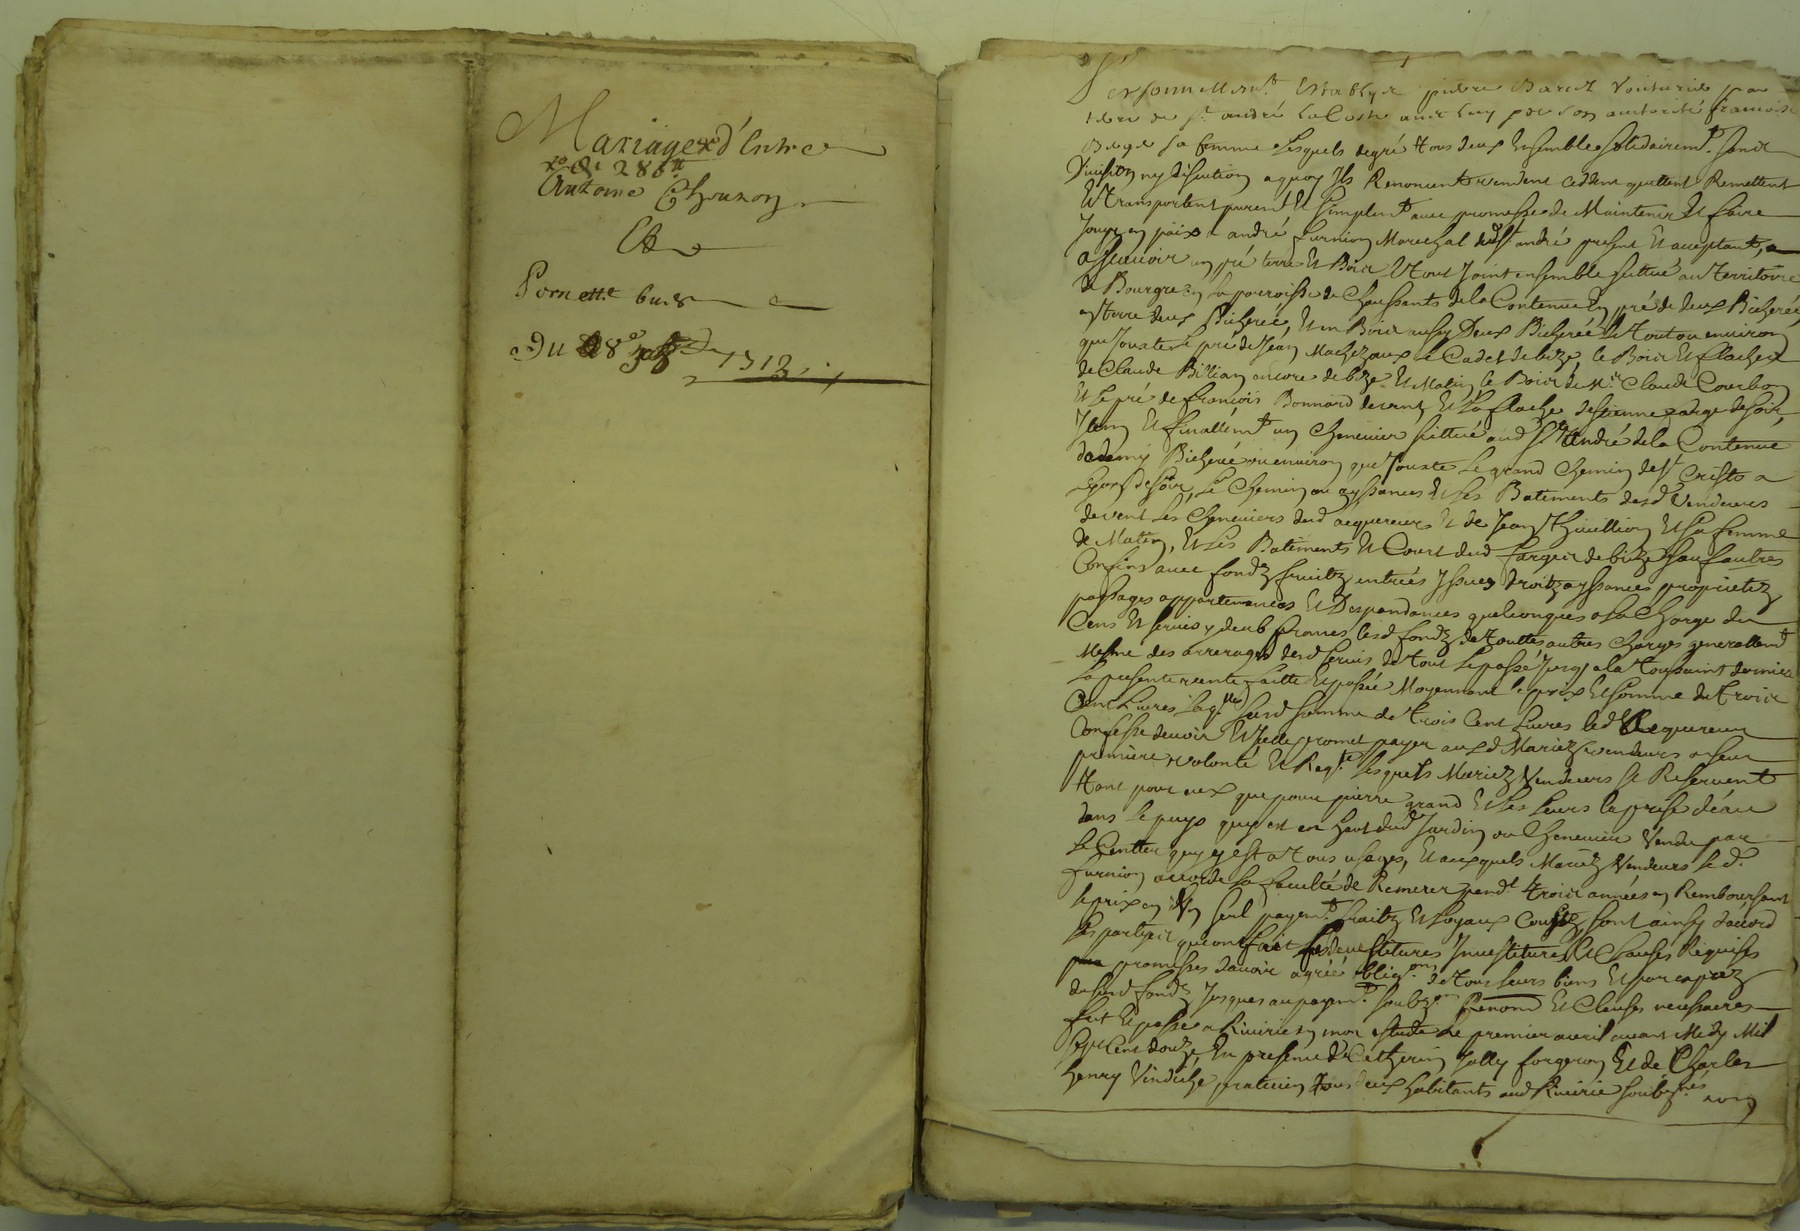 Mariage d'Entre
Antoine Chouzon
Et
Pernette
Du 28e 1712
Personnellemt. Establys pierre voiturier par
terre de St andré La Coste avec Luy par son autorité francoise
sa femme Lesquels de gré tous deux Ensemble solidairemt. sans
Division ny discution a quoy Ils Renoncent vendent ceddent quittent Remettent
Et transportent puremt Et simplemt avec promesse de Maintenir Et faire
Jouyr en paix a andré furnion Marechal dudt St andré present Et acceptant, a
assavoir un pré terre Et Bois Le tout Joint ensemble scittué au Territoire
de en La parroisse de Chaussants de la Contenue En pré de deux Bicherée,
en terre deux Bicherée, Et en Bois aussy Deux Bicherée Le tout ou environ
que Jouxte Le pré de Jean Le Cadet de bize, le Bois Et
de Claude encore de bize Et Matin, le Bois de Mr. Claude Courbon
Et Le pré de francois Bonnard de vent Et La de soir,
Item Et finallemt un Chenevier scittué aud St André de la Contenue
Bicherée ou environ que Jouxte Le grand Chemin de St Cristo a
de soir, Le Chemin ou ayssances Et Les Batiments desd Vendeurs
de vent Les Cheneviers dud acquereur Et de Jean Thuillion Et sa femme
de Matin, Et Les Batiments Et Court dud de bize sauf autres
Confins avec fondz fruitz entrées yssues droitz ayssances proprietez
passages appartenances Et Despandances quelconques a La Charge des
Cens Et servis y deub francs lesd fondz de touttes autres Charges generallemt
Mesme des arrerages desd servis de tout Le passé Jusqs a la toussaints derniere
La presente vente faitte Et passée Moyennant le prix Et somme de trois
Cent Livres Laqlle susd somme de trois Cent Livres led Acquereur
Confesse devoir Et Icelle promet payer ausd Mariez vendeurs a leur
premiere volonté Et Reqte. Lesquels Mariez Vendeurs se Reservent
tant pour eux que pour pierre grand Et Les Leurs la prise d'eau
dans Le puys quy est en haut dud Jardin ou Chenevier Vendu par
Le Sentier quy y est a tous usages, Et ausquels Mariez Vendeurs led.
furnion accorde La faculté de Remerer pendt. trois années en Remboursant
le prix en Un seul payemt. fraitz Et Loyaux Coustz sont ainsy d'accord
Les parties quy ont fait Les devestitures Investitures Et Clauses Requises
promesses d'avoir agrée obligons. de tous leurs biens Et par exprez
desusd fondz Jusques au payemt. soubzons Renonon Et Clauses necessaires
fait Et passé a Riverie en mon estude Le premier avril avant Midy Mil
Sept Cent douze, En presence de Catherin Jolly forgeron Et de Charles
henry Vindiche praticien tous deux habitants aud Riverie soubznés.